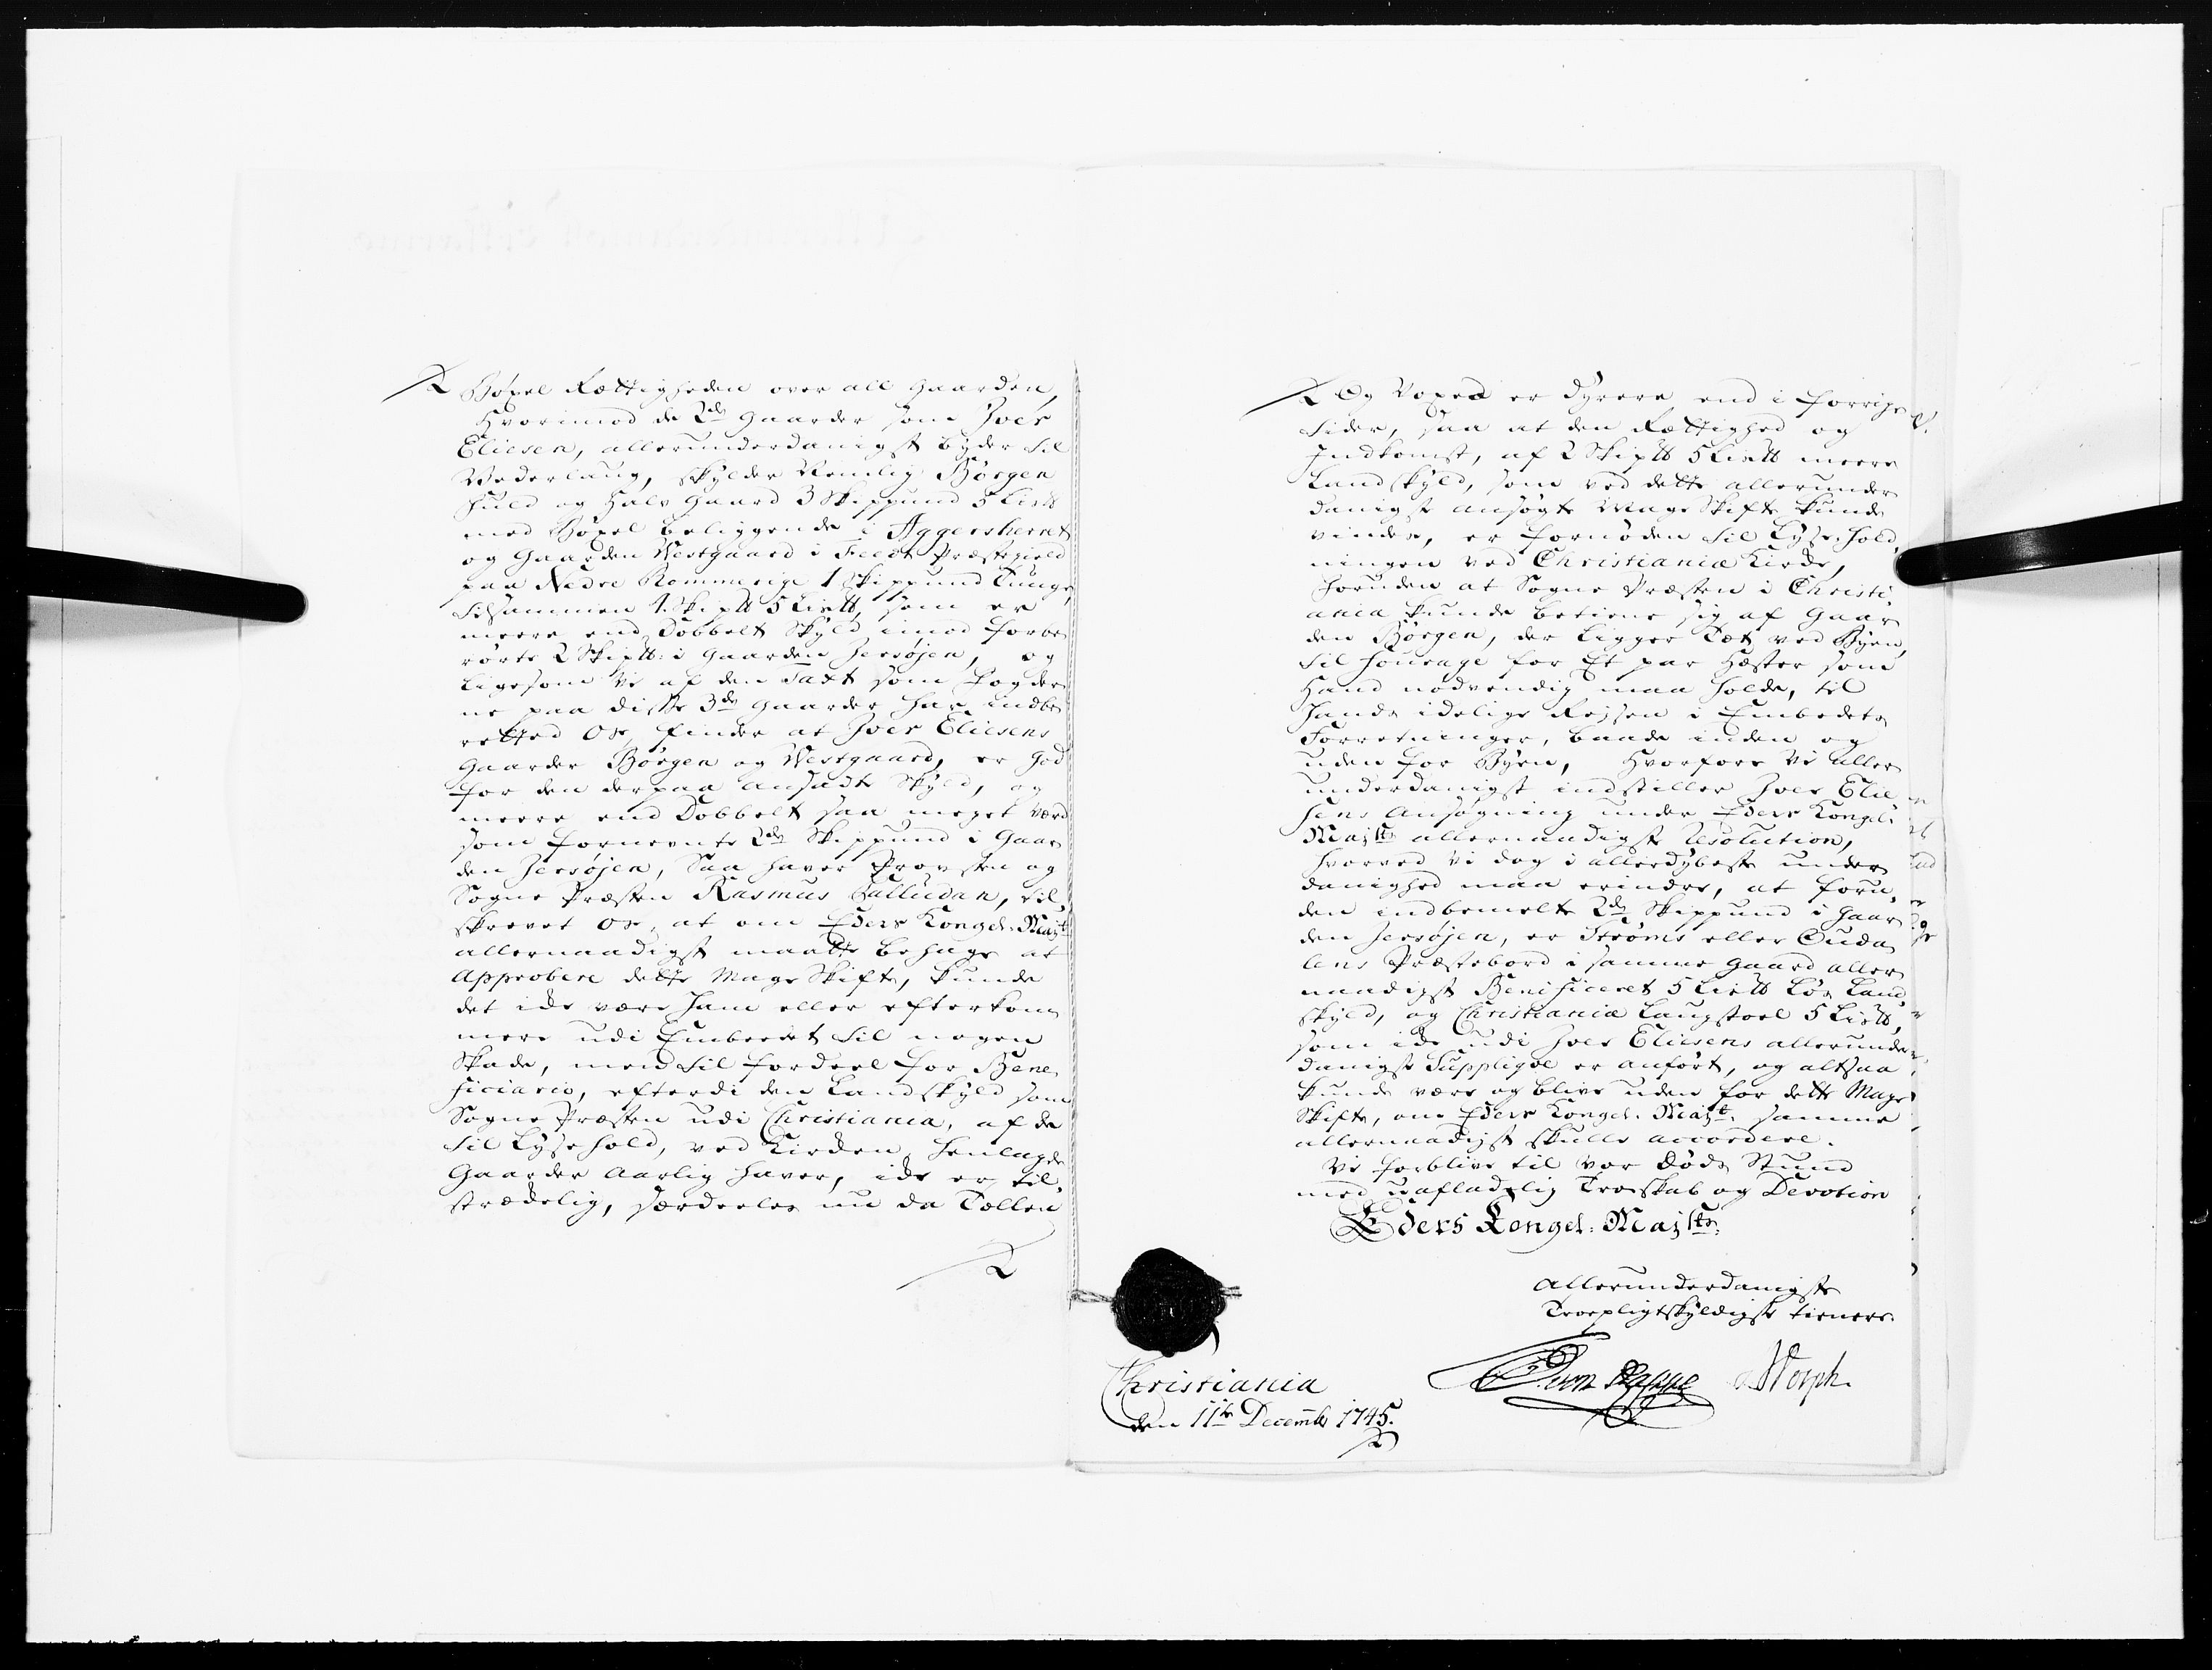 Bøxel Rettigheden over all Gaarden,
Hvorimod de 2de Gaarder som Iver
Eliesen, allerunderdanigst byder til
Vederlaug, skylder Nemlig Børgen
fuld og Halv Gaard 3 Skippund 5 Lis℔
med Bøxel beliggende i Aggersherret
og Gaarden Westgaard i Feedt Præstegield
paa Nedre Rommerige 1 Skippund Tunge,
tilsammen 4 Skip℔ 5 Lis℔, som er
meere end Dobbelt Skyld imod forbe
rørte 2 Skip℔: i Gaarden Jersøjen, og
ligesom Vi af den Taxt som Fogder
ne paa disse 3de Gaarder har indbe
retted Os, finder at Iver Eliesens
Gaarder Børgen og Westgaard, er god
for den derpaa ansadte Skyld, og
meere end Dobbelt saa meget værd
som fornevnte 2de Skippund i Gaar
den Jersøjen, Saa haver Provsten og
Sogne Præsten Rasmus Palludan, til
skrevet Os, at om Eders Kongel. Mayt
allernaadigst maatte behage at
Approbere dette Mage Skifte, kunde
det icke være ham eller efterkom
mere udi Embedet til nogen
Skade, men til fordeel for Bene
ficiario, efterdi den Landskyld som
Sogne Præsten udi Christiania, af de
til Lysehold, ved Kirken henlagde
Gaarder Aarlig haver, icke er til
streckelig, særdeeles nu da Tællen
Og Voxed er dyrere end i forrige
tider, saa at den Rettighed og
Indkomst, af 2 Skip℔ 5 Lis℔ meere
Landskyld, som ved dette allerunder
danigst ansøgte Mage Skifte kunde
vindes, er fornøden til Lyse-hold
ningen ved Christiania Kirke,
foruden at Sogne Præsten i Christi
ania kunde betiene sig af Gaar
den Børgen, der ligger Tæt ved Byen,
til fourage for Et par Hæster som
Hand nødvendig maa holde, til
hands idelige Rejser i Embedets
Forretninger, baade inden og
uden for Byen, Hvorfore Vi aller
underdanigst indstiller Iver Elie
sens Ansøgning under Eders Kongel:
Majsts allernaadigste Resolution,
hvorved Vi dog i allerdybeste under
danighed maa erindre, at foru
den indbemelte 2de Skippund i Gaar
den Jersøjen, er Strøms eller Guda
lens Præstebord i samme Gaard aller
naadigst Beneficeret 5 Lis℔ Løs Land
skyld, og Christiania Laugstoel 5 Lis℔,
som icke udi Iver Eliesens allerunder
danigste Suppliqve er anført, og altsaa
kunde være og blive uden for dette Mage
Skifte, om Eders Kongel. Mayt. samme
allernaadigst skulle accordere.
Vi forblive til vor Døds Stund
med uafladelig Troeskab og Devotion
Eders Kongel: Majsts
allerunderdanigste
Troepligtskyldigste tienere
Christiania
den 11te Decembr 1745.
Storph.